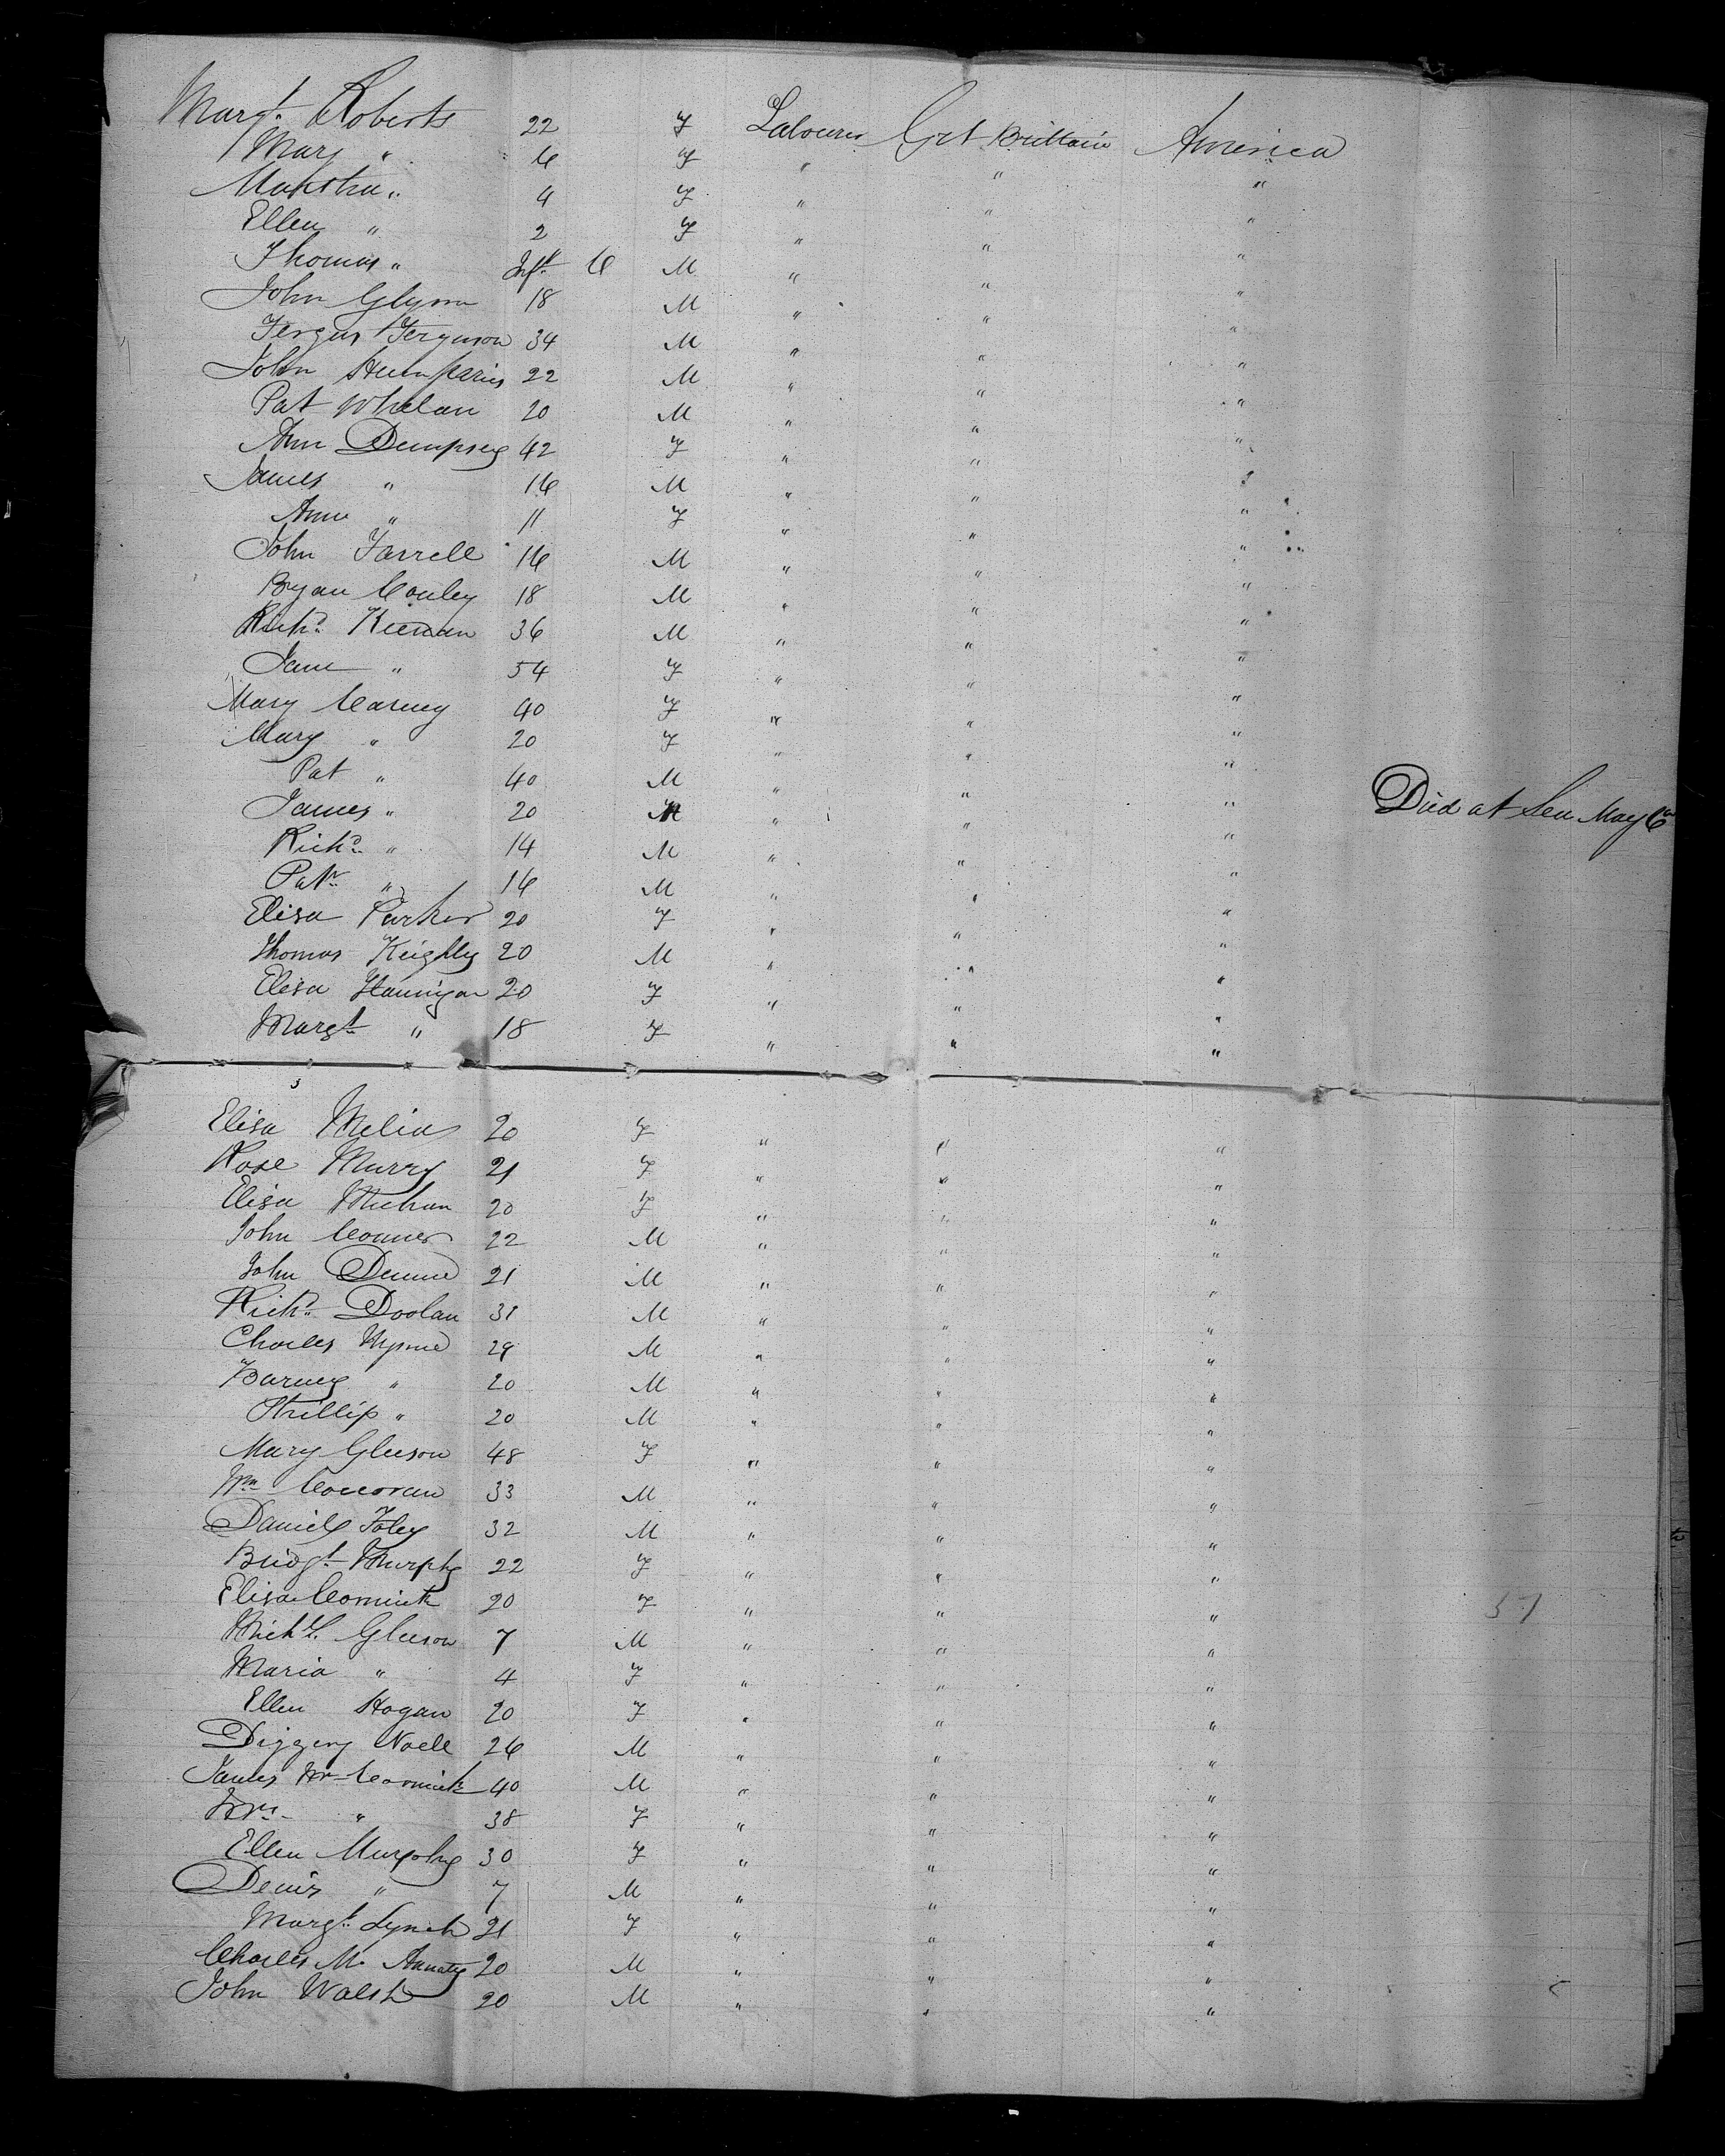 Margt. Roberts 22 F Labourer Grt Brittain America
Mary " 6 F " " "
Martha " 4 F " " "
Ellen " 2 F " " "
Thomas " Inft. 6 M " " "
John Glynn 18 M " " "
Fergus Ferguson 34 M " " "
John Humpharies 22 M " " "
Pat Whelan 20 M " " "
Ann Dempsey 42 F " " "
James " 16 M " " "
Ann " 11 F " " "
John Farrell 16 M " " "
Bryan Conley 18 M " " "
Richd. Kiernan 36 M " " "
Jane " 54 F " " "
Mary Carney 40 F " " "
Mary " 20 F " " "
Pat " 40 M " " "
James " 20 M " " " Died at Sea May 6th
Richd. " 14 M " " "
Patk. " 16 M " " "
Elisa Parker 20 F " " "
Thomas Keighly 20 M " " "
Elisa Hannigan 20 F " " "
Margt " 18 F " " "
Elisa Melia 20 F " " "
Rose Murry 21 F " " "
Elisa Meehan 20 F " " "
John Conner 22 M " " "
John Dunne 21 M " " "
Richd. Doolan 31 M " " "
Charles Wynne 29 M " " "
Barney " 20 M " " "
Phillip " 20 M " " "
Mary Gleeson 48 F " " "
Wm Corcoran 33 M " " "
Daniel Foley 32 M " " "
Bridgt Murphy 22 F " " "
Elisa Cormick 20 F " " "
Michl. Gleeson 7 M " " "
Maria " 4 F " " "
Ellen Hogan 20 F " " "
Diggery Noell 26 M " " "
James McCormick 40 M " " "
Mrs. " 38 F " " "
Ellen Murphy 30 F " " "
Denis " 7 M " " "
Margt. Lynch 21 F " " "
Charles Mc 20 M " " "
John Walsh 20 M " " "